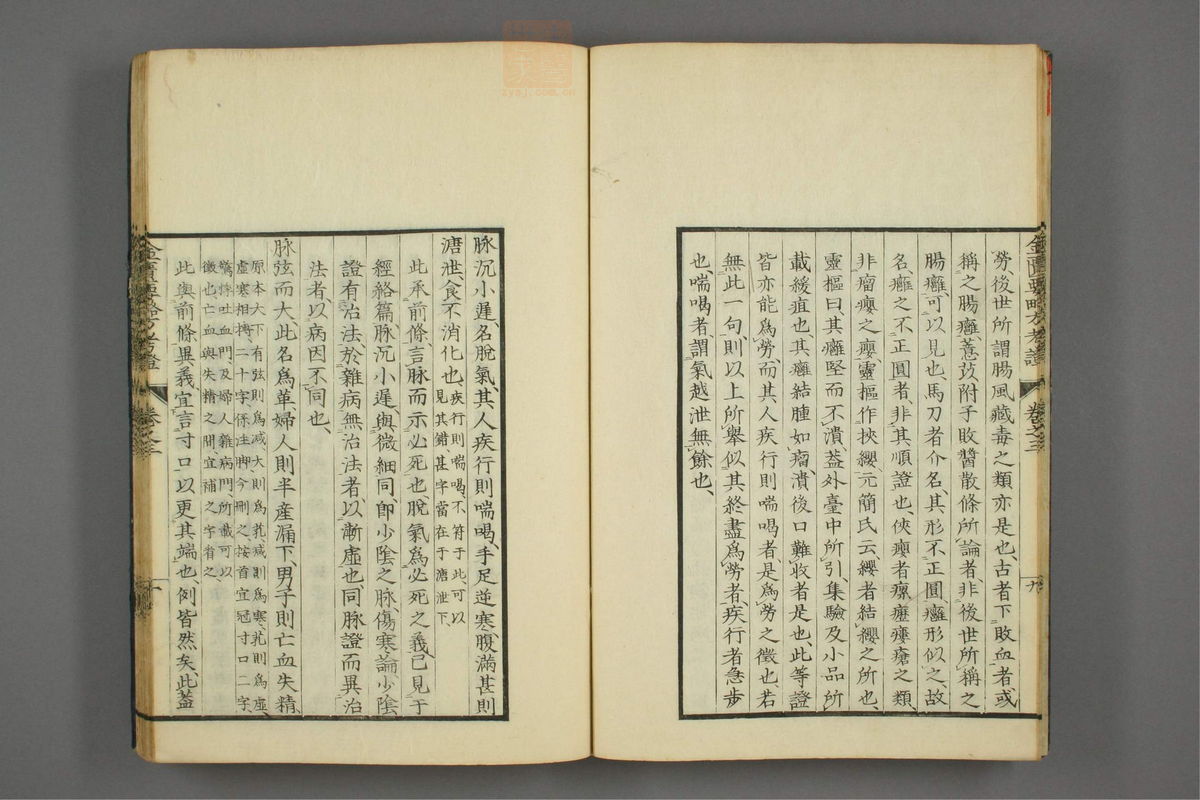 勞、後世所謂腸風藏毒之類亦是也、古者下敗血者、或
稱之腸癰、薏苡附子敗醬散條所論者、非後世所稱之
腸癰、可以見也、馬刀者介名、其形不正圓、癰形似之、故
名、癰之不正圓者、非其順證也、俠癭者瘰癧瘻瘡之類、
非瘤癭之癭、靈樞作挾纓、元簡氏云、纓者結纓之所也、
靈樞曰、其癰堅而不潰、葢外臺中所引、集驗及小品所
載緩疽也、其癰結腫如瘤、潰後口難收者是也、此等證
皆亦能爲勞、而其人疾行則喘喝者、是爲勞之徵也、若
無此一句、則以上所舉、似其終盡爲勞者、疾行者急步
也、喘喝者、謂氣越泄無餘也、
金匱要略方考證
卷之三
九
脉沉小遲、名脫氣、其人疾行則喘喝、手足逆寒、腹滿、甚則
溏泄、食不消化也、疾行則喘喝、不符于此、可以見其錯、甚字當在于溏泄下、
此承前條、言脉而示必死也、脫氣爲必死之義、已見于
經絡篇、脉沉小遲、與微細同、卽少陰之脉、傷寒論少陰
證有治法、於雜病無治法者、以漸虛也、同脉證而異治
法者、以病因不同也、
脉弦而大、此名爲革、婦人則半産漏下、男子則亡血失精
原本大下有弦則爲減、大則爲芤、減則爲寒、芤則爲虛、
虛寒相搏、二十字、係注脚、今刪之、按首宜冠寸口二字、
驚悸吐血門、及婦人雜病門、所載可以
徵也、亡血與失精之間、宜補之字看之、
此與前條異義、宜言寸口以更其端也、例皆然矣、此葢
金匱要略方考證
卷之三
十
zysj.com.cn